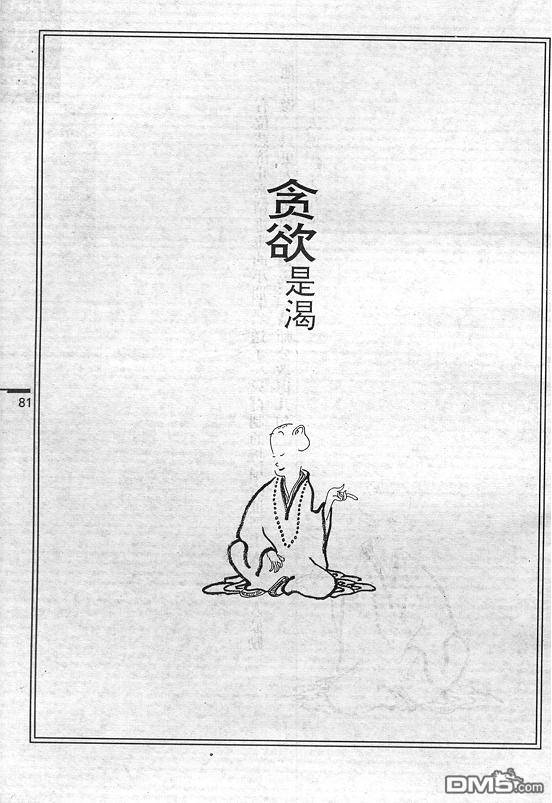 贪欲是渴
81
DM5.com